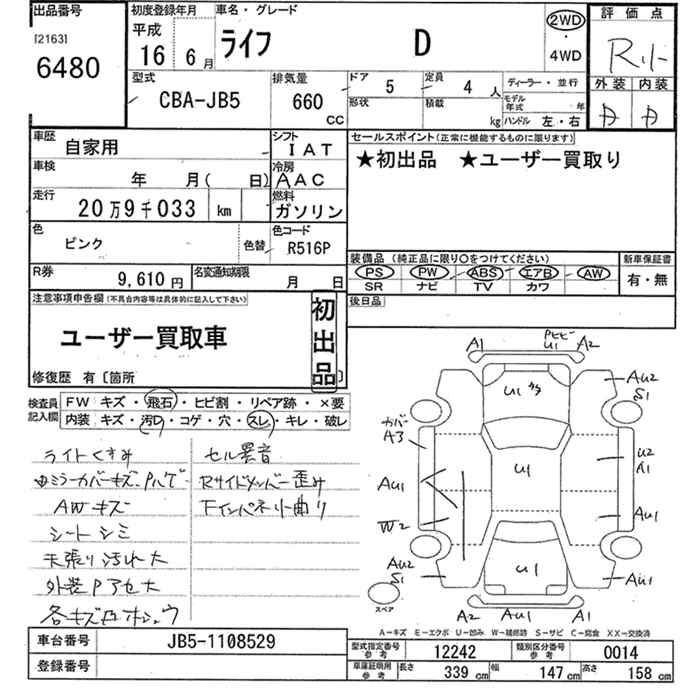 出品番号 初度登録年月 車名・グレード 2WD 評価点
[2163] 平成
6480 16 6月 ライフ D ・ R小
4WD
型式 排気量 ドア 5 定員 4人 ディーラー・並行 外装 内装
CBA-JB5 660 CC 形状 積載 kg モデル年式 年 D D
ハンドル 左・右
車歴 自家用 シフト IAT セールスポイント(正常に機能するものに限ります)
車検 年 月( 日) 冷房 AAC ★初出品 ★ユーザー買取り
走行 20万9千033 km 燃料 ガソリン
色 ピンク 色替 色コード R516P
装備品(純正品に限り○をつけてください) 新車保証書
R券 9,610円 名変通知期限 月 日 PS PW ABS エアB AW 有・無
SR ナビ TV カワ
注意事項申告欄(不具合内容等は具体的に記入して下さい) 後日品
ユーザー買取車 初出品
修復歴 有〔箇所 〕
検査員記入欄 FW キズ・飛石・ヒビ割・リペア跡・×要
内装 キズ・汚D・コゲ・穴・スレ・キレ・破レ
ライトくすみ セル異音
ミラーカバーキズ・Pハゲ Rサイドメンバー歪み
AWキズ Fインパネリ曲り
シートシミ
天張り汚れ大
外装Pアセ大
各キズ凹ホシュウ
A1 U1 A2
U1 AU2
S1
カバー
A3 U2
A1
U1
AU1
W2 AU1
AU2
S1 U1 AU1
スペア
A2 AU1 A1
A－キズ E－エクボ U－凹み W－補修跡 S－サビ C－腐食 XX－交換済
車台番号 JB5-1108529 型式指定番号参考 12242 類別区分番号参考 0014
登録番号 車庫証明用参考 長さ 339cm 幅 147cm 高さ 158cm